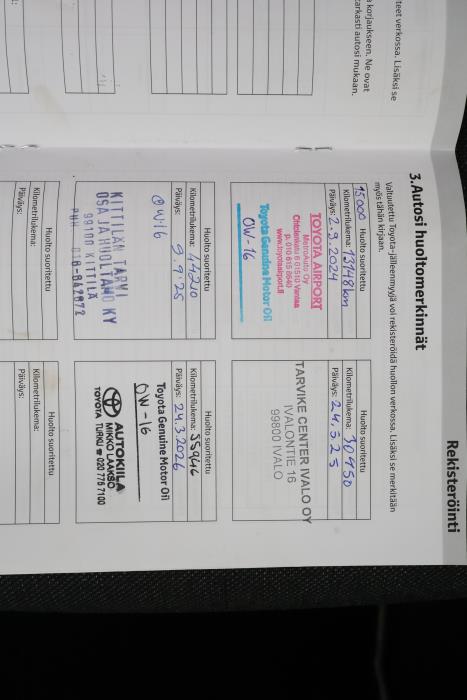 teet verkossa. Lisäksi se
korjaukseen. Ne ovat
tarkasti autosi mukaan.
Rekisteröinti
3. Autosi huoltomerkinnät
Valtuutettu Toyota-jälleenmyyjä voi rekisteröidä huollon verkossa. Lisäksi se merkitään
myös tähän kirjaan.
15000 Huolto suoritettu
Kilometrilukema: 13148 km
Päiväys: 2.9.2024
TOYOTA AIRPORT
MetroAuto Oy
Ohtolankatu 6 01510 Vantaa
p. 010 615 8640
www.toyotaairport.fi
Toyota Genuine Motor Oil
0W-16
Huolto suoritettu
Kilometrilukema: 30950
Päiväys: 24.5.25
TARVIKE CENTER IVALO OY
IVALONTIE 16
99800 IVALO
Huolto suoritettu
Kilometrilukema: 44210
Päiväys: 9.9.25
0W16
KITTILÄN TARVI
OSA JA HUOLTAMO KY
99100 KITTILÄ
PUH 016-642072
Huolto suoritettu
Kilometrilukema: 55946
Päiväys: 24.3.2026
Toyota Genuine Motor Oil
0W-16
AUTOKILA
MIKKO LAAKSO
TOYOTA TURKU ☎ 020 775 7100
Huolto suoritettu
Kilometrilukema:
Päiväys:
Huolto suoritettu
Kilometrilukema:
Päiväys: